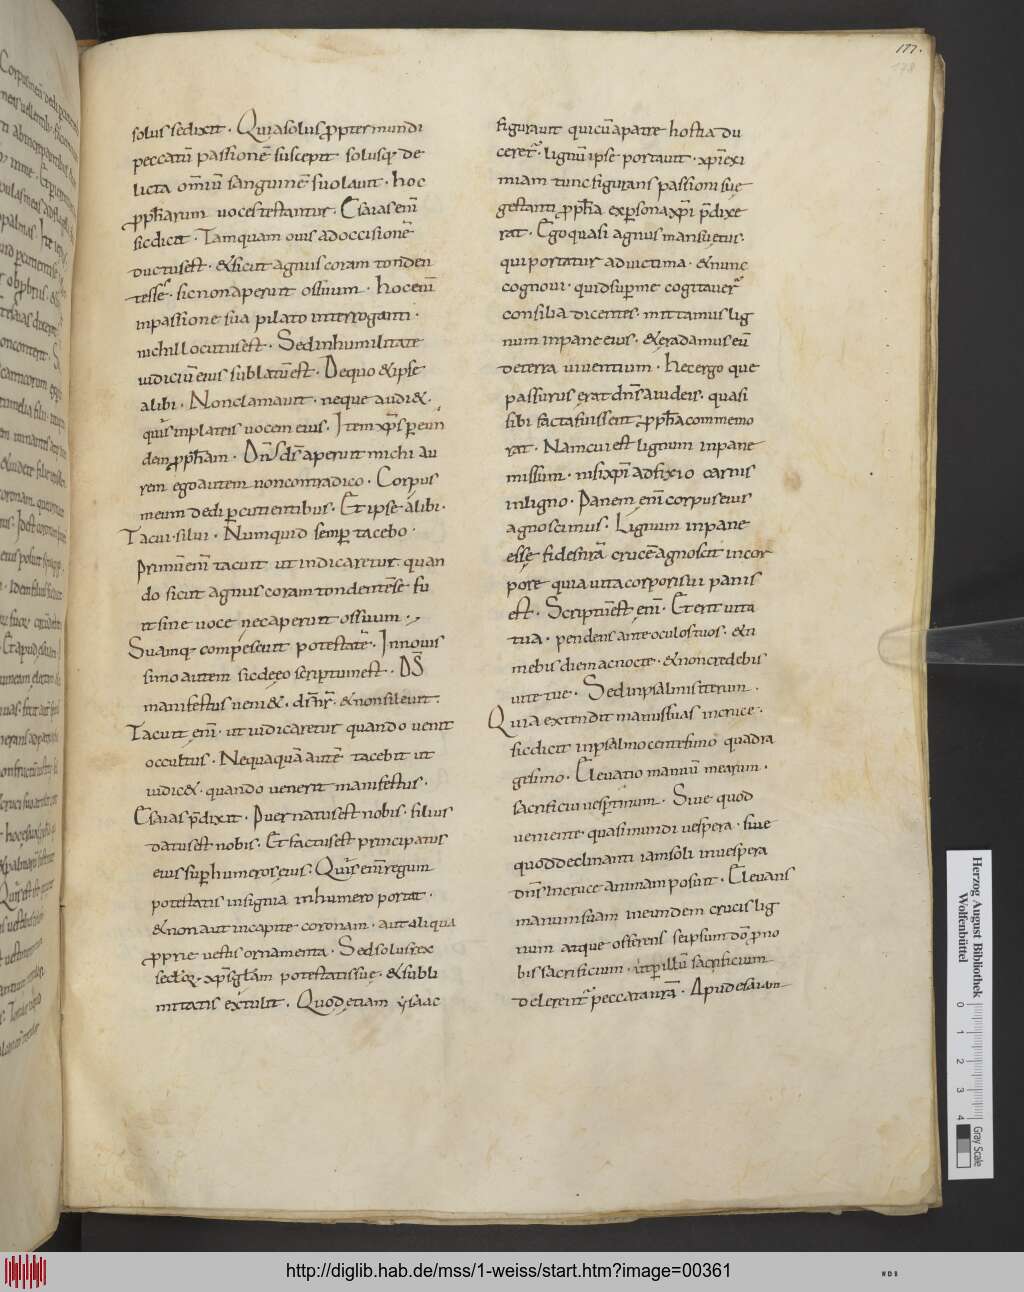 177.
178
solus sedixit. Quiasolus ꝓpter mundi
peccatū passionē suscepit solusq; de
licta om̄iū sanguinē suo lauit. hoc
ꝓph̄arum uoces testantur. Esaias em̄
sicdicit. Tamquam ouis adoccisionē
ductusest. &sicut agnus coram tonden
tesse. sic nonaperuit os suum. hocem̄
inpassione sua pilato interroganti.
nichil locutusest. Sed inhumilitate
iudiciū eius sublatūest. Dequo &ipse
alibi. Nonclamauit. neque audi&.
quis inplateis uocem eius. Item xp̄s per eun
dem ꝓph̄am. Dn̄s ds̄ aperuit michi au
rem ego autem noncontradico. Corpus
meum dedi ꝑcutientibus. Et ipse alibi.
Tacui. silui. Numquid semꝑ tacebo.
Primū em̄ tacuit ut iudicaretur. quan
do sicut agnus coram tondentēse fu
it sine uoce necaperuit os suum.
Suamq; compescuit potestatē. Innouis
simo autem sic deeo scriptumest. DS̄
manifestus ueni&. ds̄ nr̄. &nonsileuit.
Tacuit em̄. ut iudicaretur quando uenit
occultus. Nequaquā autē tacebit ut
iudic&. quando uenerit manifestus.
Esaias p̄dixit. Puer natusest nobis. filius
datusest nobis. Et factusest principatus
eius suꝑ humeros eius. Quis em̄ regum
potestatis insignia inhumero portat.
&non aut incapite coronam. aut aliqua
ꝓprie uestis ornamenta. Sed solus rex
secl̄oꝝ. xp̄s gl̄am potestatis sue. &subli
mitatis extulit. Quod etiam ysaac
figurauit quicū apatre hostia du
ceret. lignū ipse portauit. xp̄i exi
miam tunc figurans passioni sue
gestanti ꝓph̄a expersona xp̄i p̄dixe
rat. Ego quasi agnus mansuetus.
qui portatur aduictima. &nunc
cognoui. quid suꝑme cogitauer
consilia dicentes. mittamus lig
num inpane eius. &eradamus eū
deterra uiuentium. Hec ergo que
passurus erat dn̄s aiudeis. quasi
sibi facta fuissent ꝓph̄a commemo
rat. Nam cui est lignum inpane
missum. nisi xp̄i adfixio carnis
inligno. Panem em̄ corpus eius
agnoscimus. Lignum inpane
esse fides nr̄a crucē agnoscit incor
pore quia uita corporis ui panis
est. Scriptūest em̄. Et erit uita
tua. pendens ante oculos tuos. &ti
mebis die mac nocte. &non credebis
uite tue. Sed inpsalmis iterum.
Quia extendit manus suas incruce.
sic dicit inpsalmo centesimo quadra
gesimo. Eleuatio manuū mearum.
sacrificiū uespertinum. Siue quod
ueniente quasi mundi uespera. siue
quod declinanti iam soli inuespera
dn̄s incruce animam posuit. Eleuans
manum suam ineundem crucis lig
num atque offerens seipsum dō ꝓ no
bis sacrificium. ut ꝑ illū sacrificium
delerent peccata nr̄a. Apud esaiam
Herzog August Bibliothek
Wolfenbüttel
0 1 2 3 4
Gray Scale
http://diglib.hab.de/mss/1-weiss/start.htm?image=00361